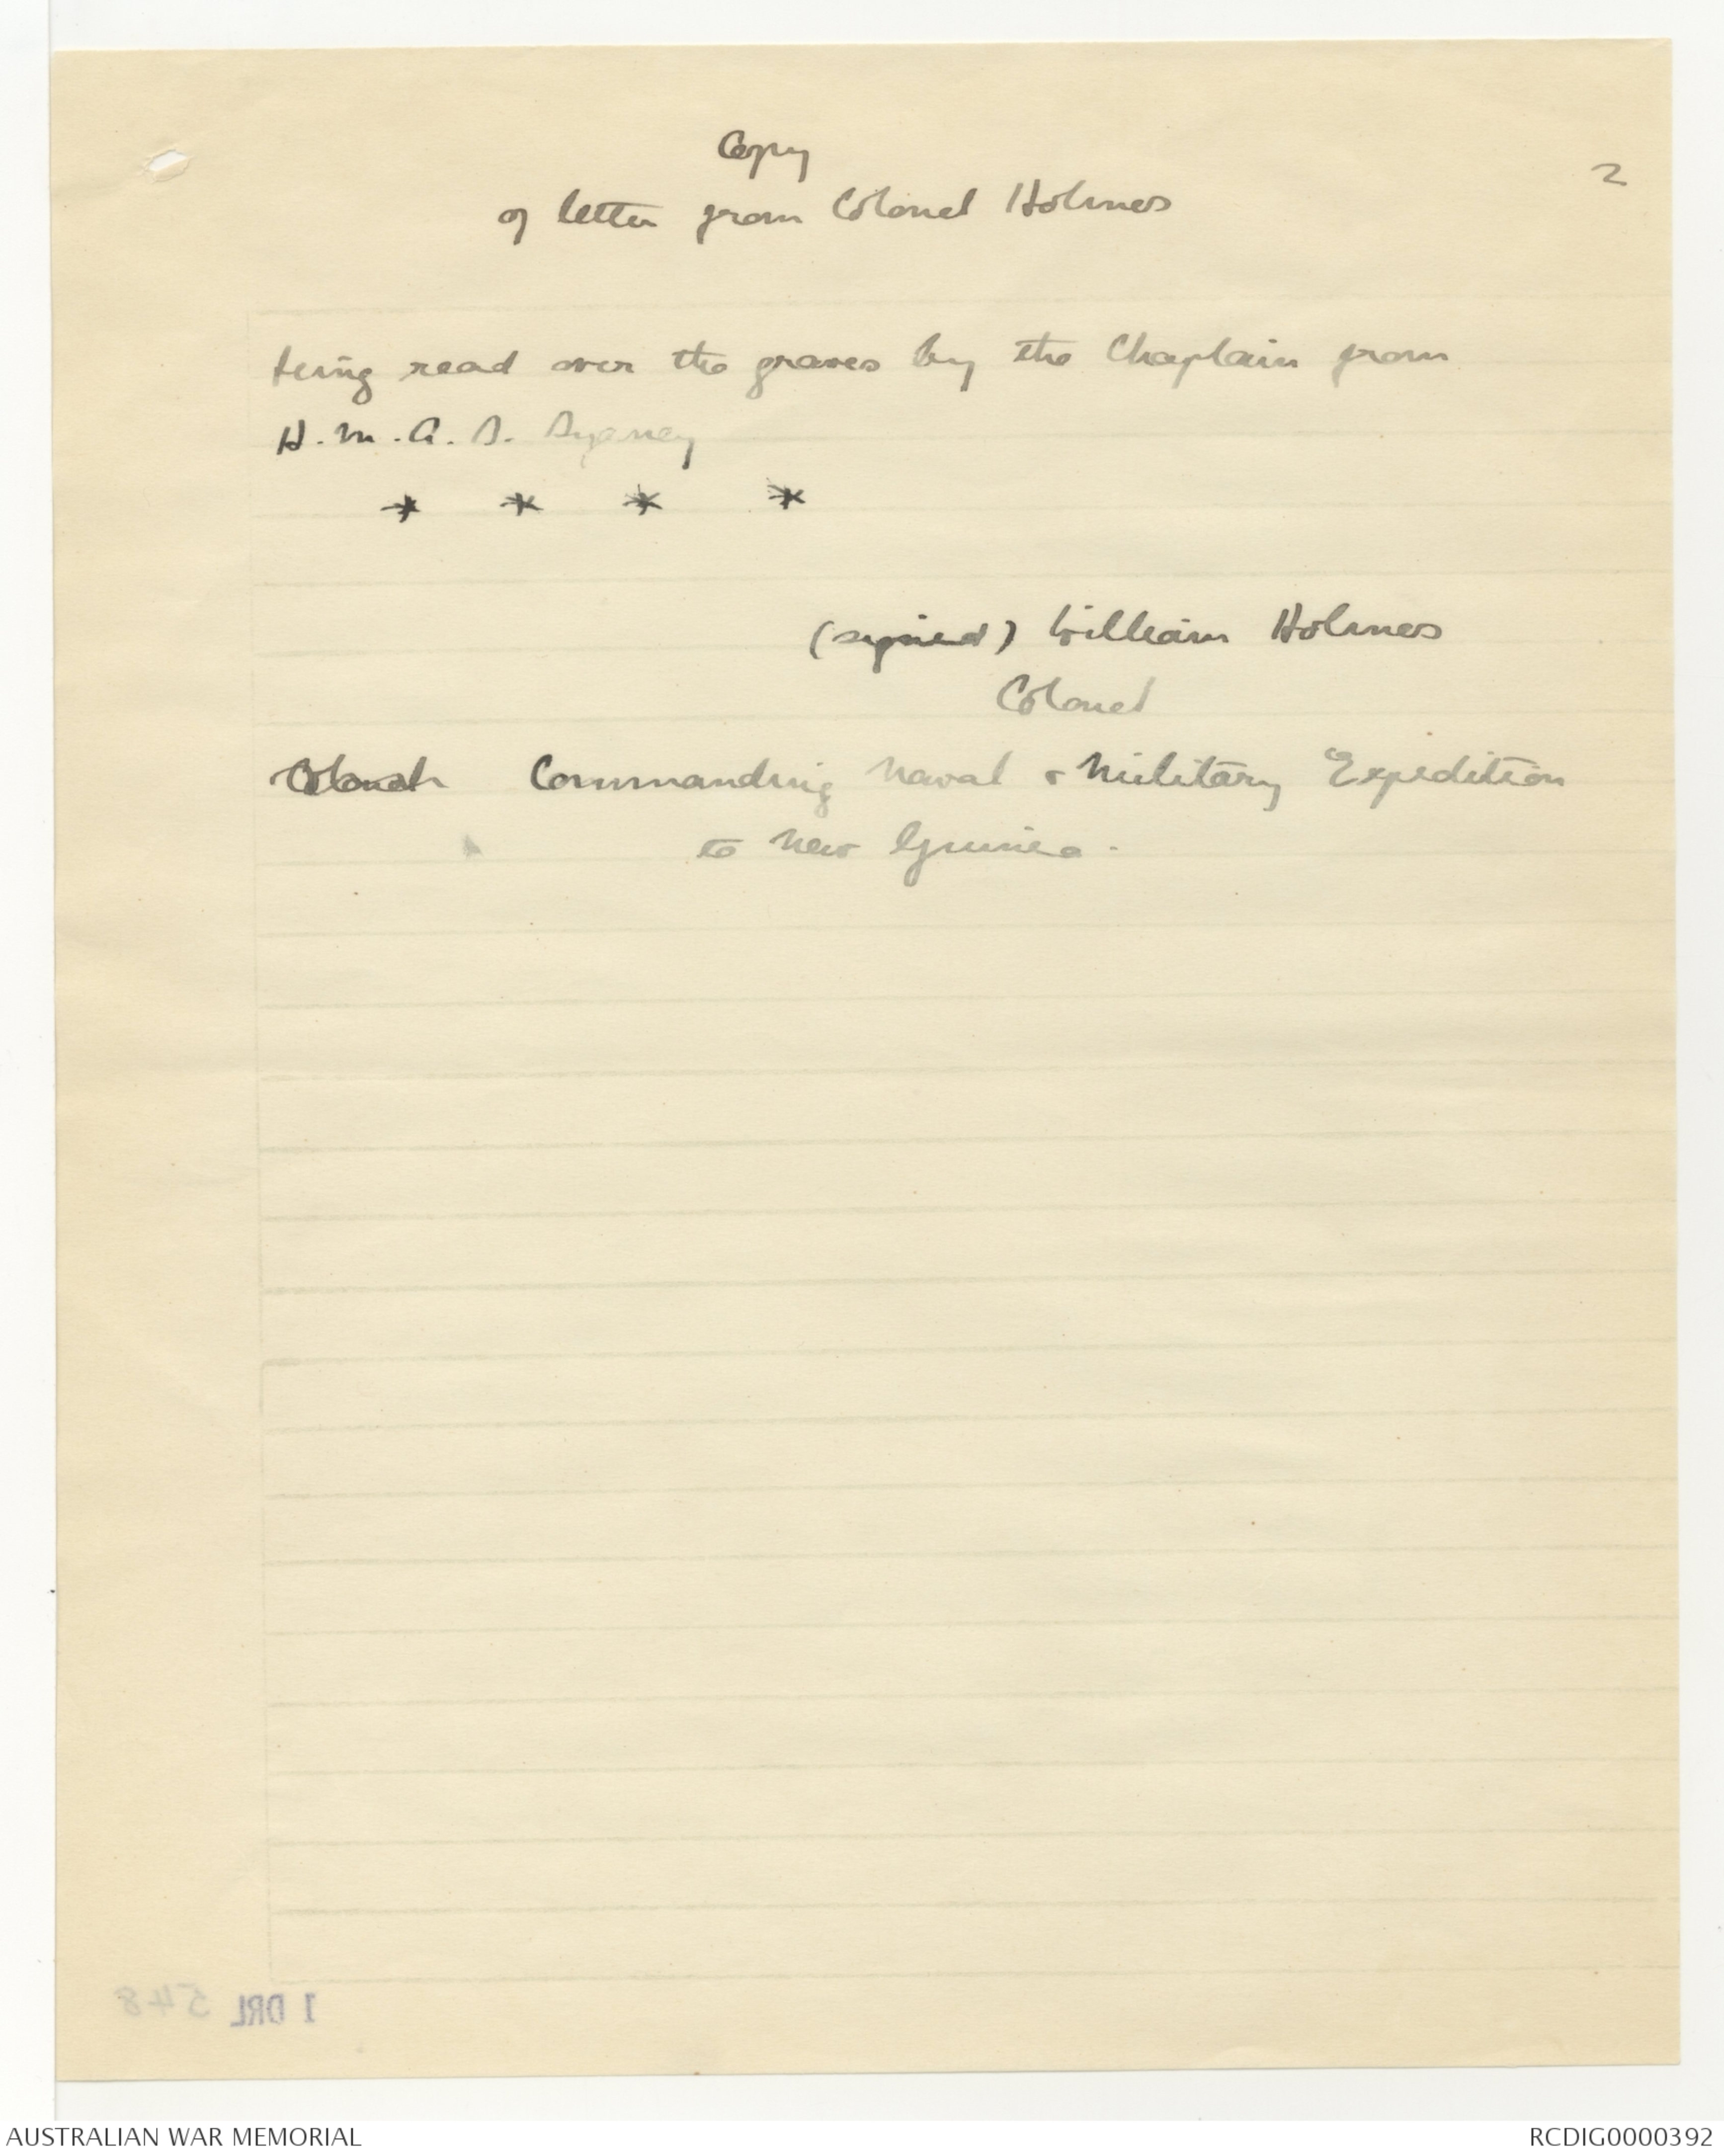 Copy
2
of letter from Colonel Holmes
being read over the graves by the Chaplain from
H.M.A.S. Sydney
* * * *
(signed) William Holmes
Colonel
Colonel Commanding Naval & Military Expedition
to New Guinea.
1 DRL 548
AUSTRALIAN WAR MEMORIAL
RCDIG0000392